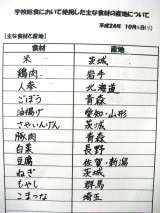 学校給食において使用した主な食材の産地について
平成24年 10月5日(
【主な食材と産地】
食材 産地
米 茨城
鶏肉 岩手
人参 北海道
ごぼう 青森
油揚げ 愛知・山形
さやいんげん 茨城
豚肉 青森
白菜 長野
豆腐 佐賀・新潟
ねぎ 茨城
もやし 群馬
こまつな 埼玉